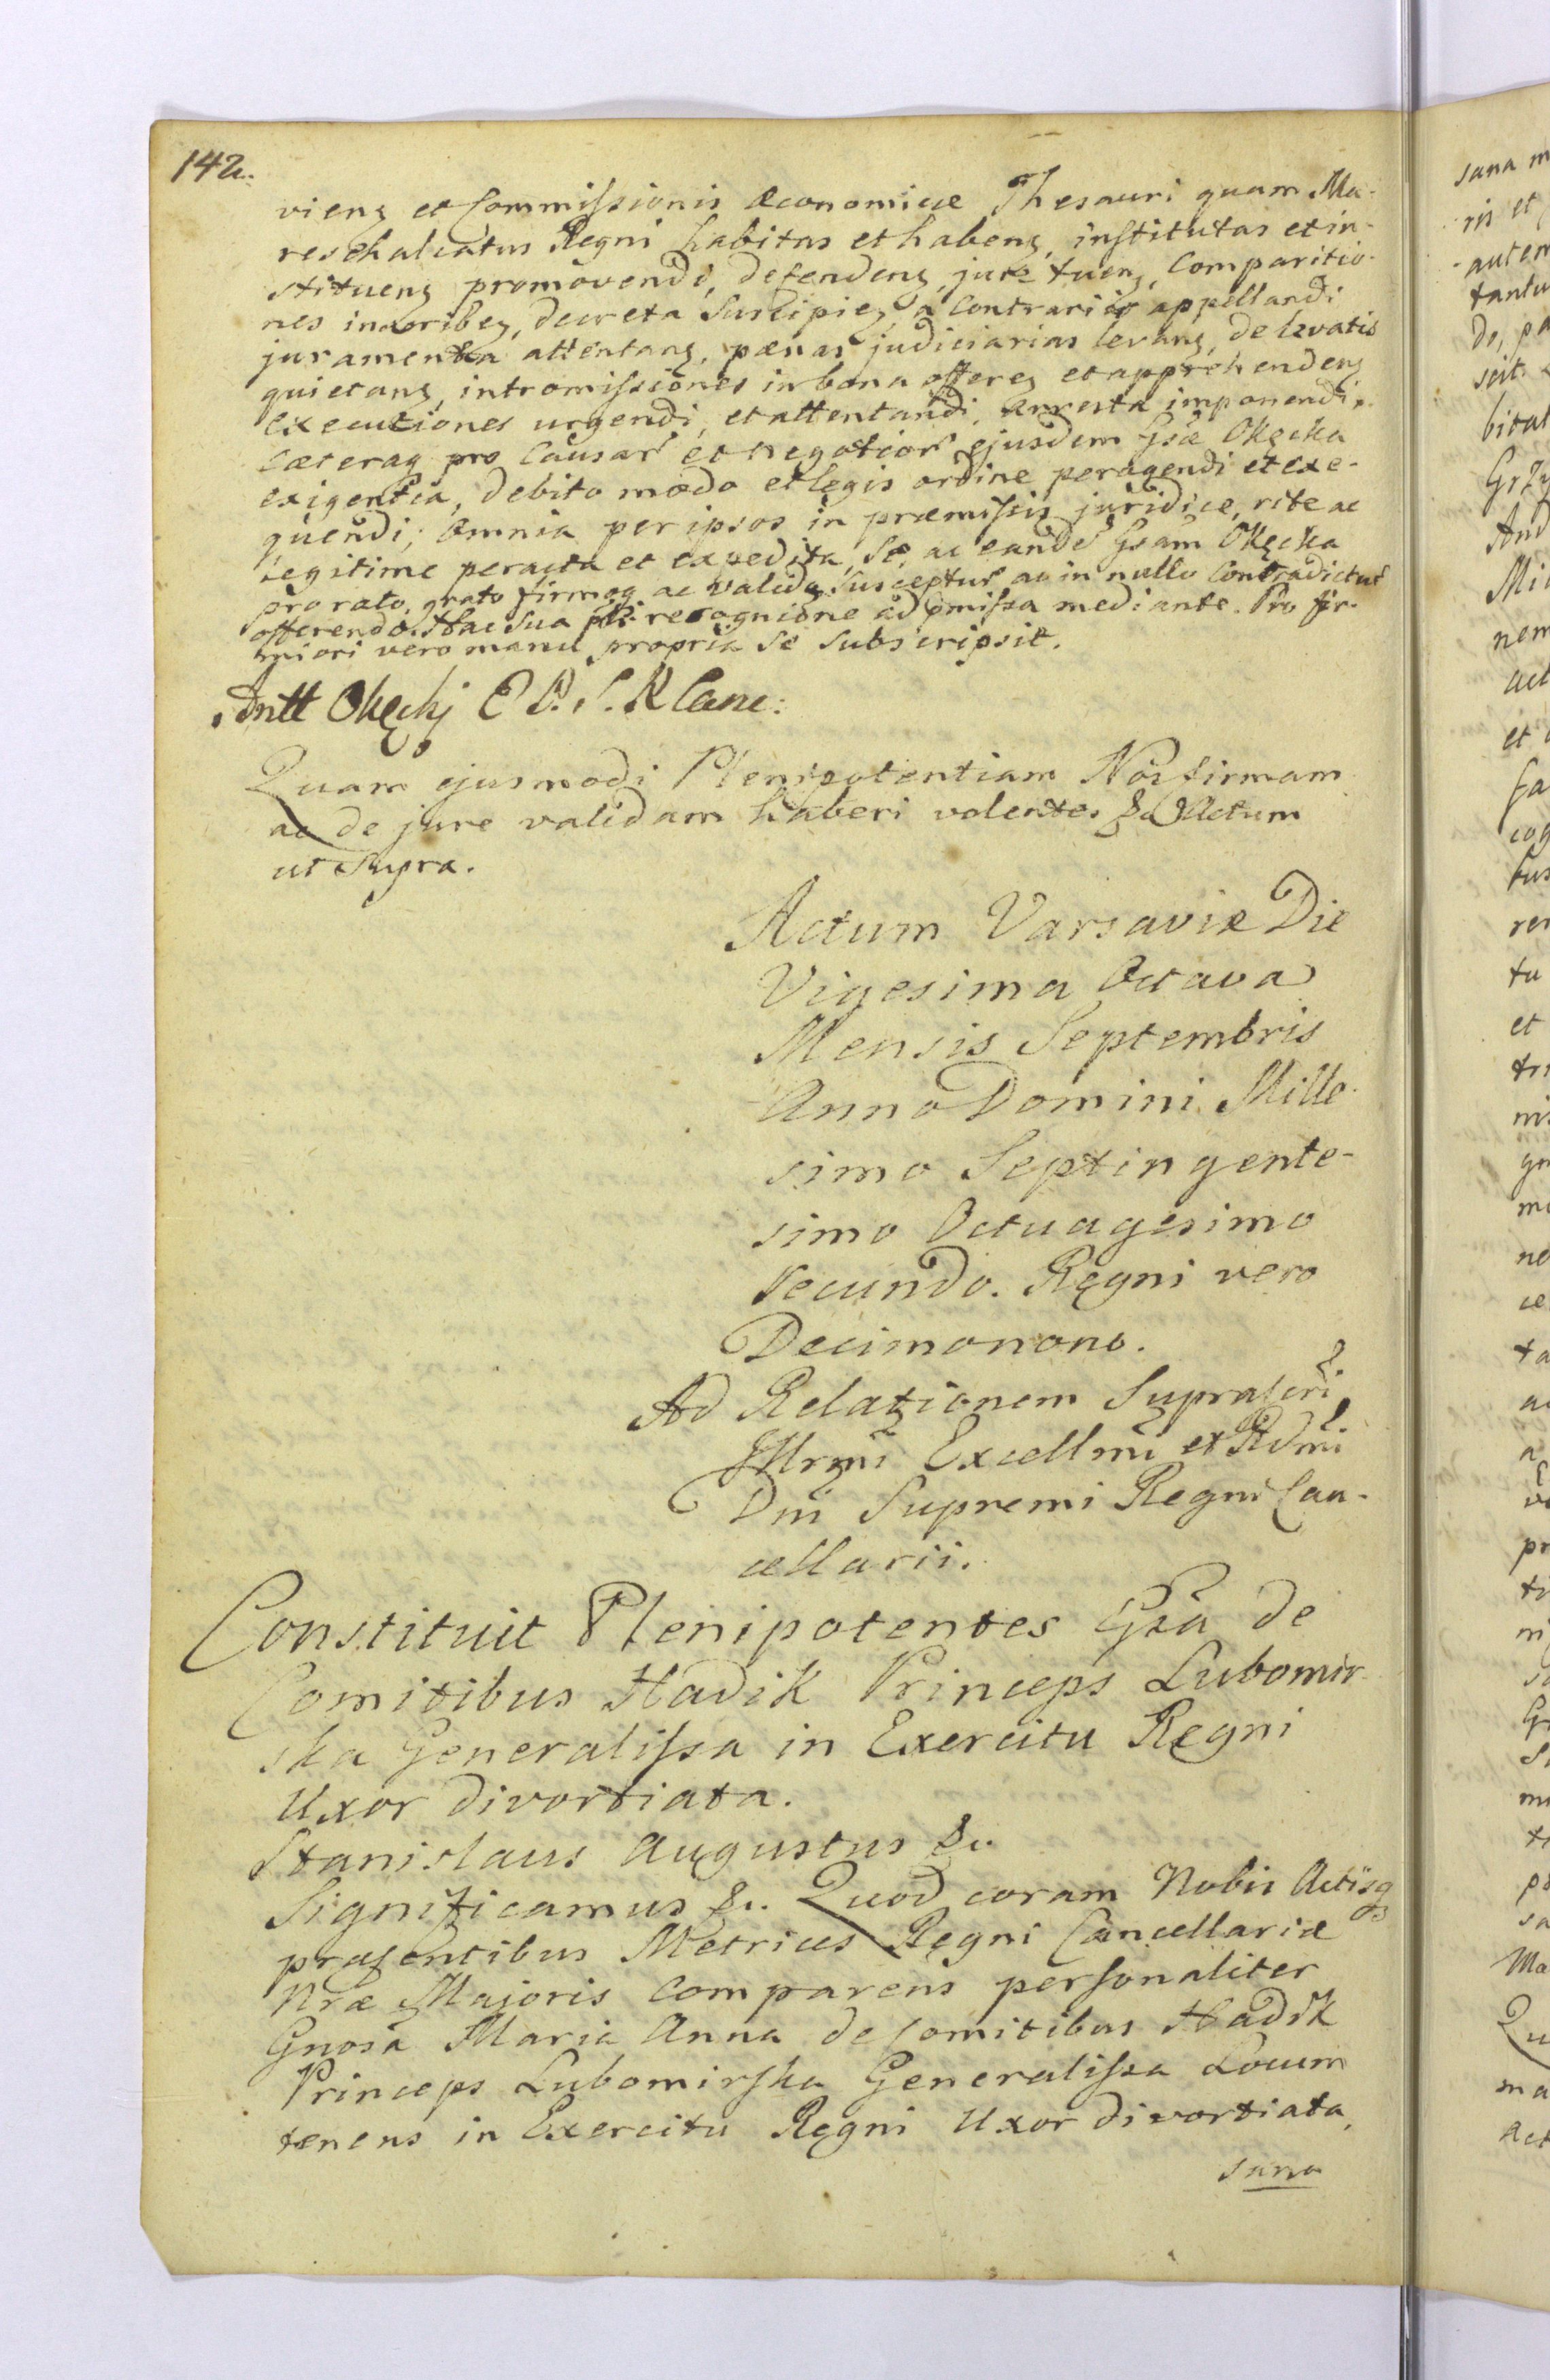 142.
vieng et Commissionis Æconomicæ Thesauri quam Ma-
reschalcatus Regni habitas et habeng, institutas et in-
stitueng promovendi, defendeng, jure tueng, Comparitio-
nes inscribeg, decreta suscipieg, a Contrario appellandi
juramenta attentang, pænas judiciarias levang, de levatis
quietang, intromissiones in bona offereg et apprehendeng
Executiones urgendi, et attentandi, arresta imponendi,
Cæteraq pro Causar et negotior ejusdem Gsæ Okęcka
exigentia, debito modo et legis ordine peragendi et exe-
quendi; omnia per ipsos in præmissis juridice, rite ac
legitime peracta et expedita, se, ac eande Gsam Okęcka
pro rato, grato firmoq ac valido susceptur ac in nullo Contradictur
offerendo. Hac sua pti recognione ad pmissa mediante. Pro fir-
miori vero manu propria se subscripsit.
Antt Okęckj E P. S. R Canc:
Quam ejusmodi Plenipotentiam Nos firmam
ac de jure validam haberi volentes &c Actum
ut supra.
Actum Varsaviæ Die
Vigesima Octava
Mensis Septembris
Anno Domini Mille-
simo Septingente-
simo Octuagesimo
Secundo. Regni vero
Decimonono.
Ad Relationem Suprascri
Illrmi Excellmi et Rdmi
Dni Supremi Regni Can-
cellarii.
Constituit Plenipotentes Gsa de
Comitibus Hadik Princeps Lubomir-
ska Generalissa in Exercitu Regni
Uxor divortiata.
Stanislaus Augustus &c.
Significamus &c. Quod coram Nobis Actisq
præsentibus Metrices Regni Cancellariæ
Nræ Majoris Comparens personaliter
Gnosa Maria Anna de Comitibus Hadik
Princeps Lubomirska Generalissa Locum
tenens in Exercitu Regni Uxor divortiata,
sana